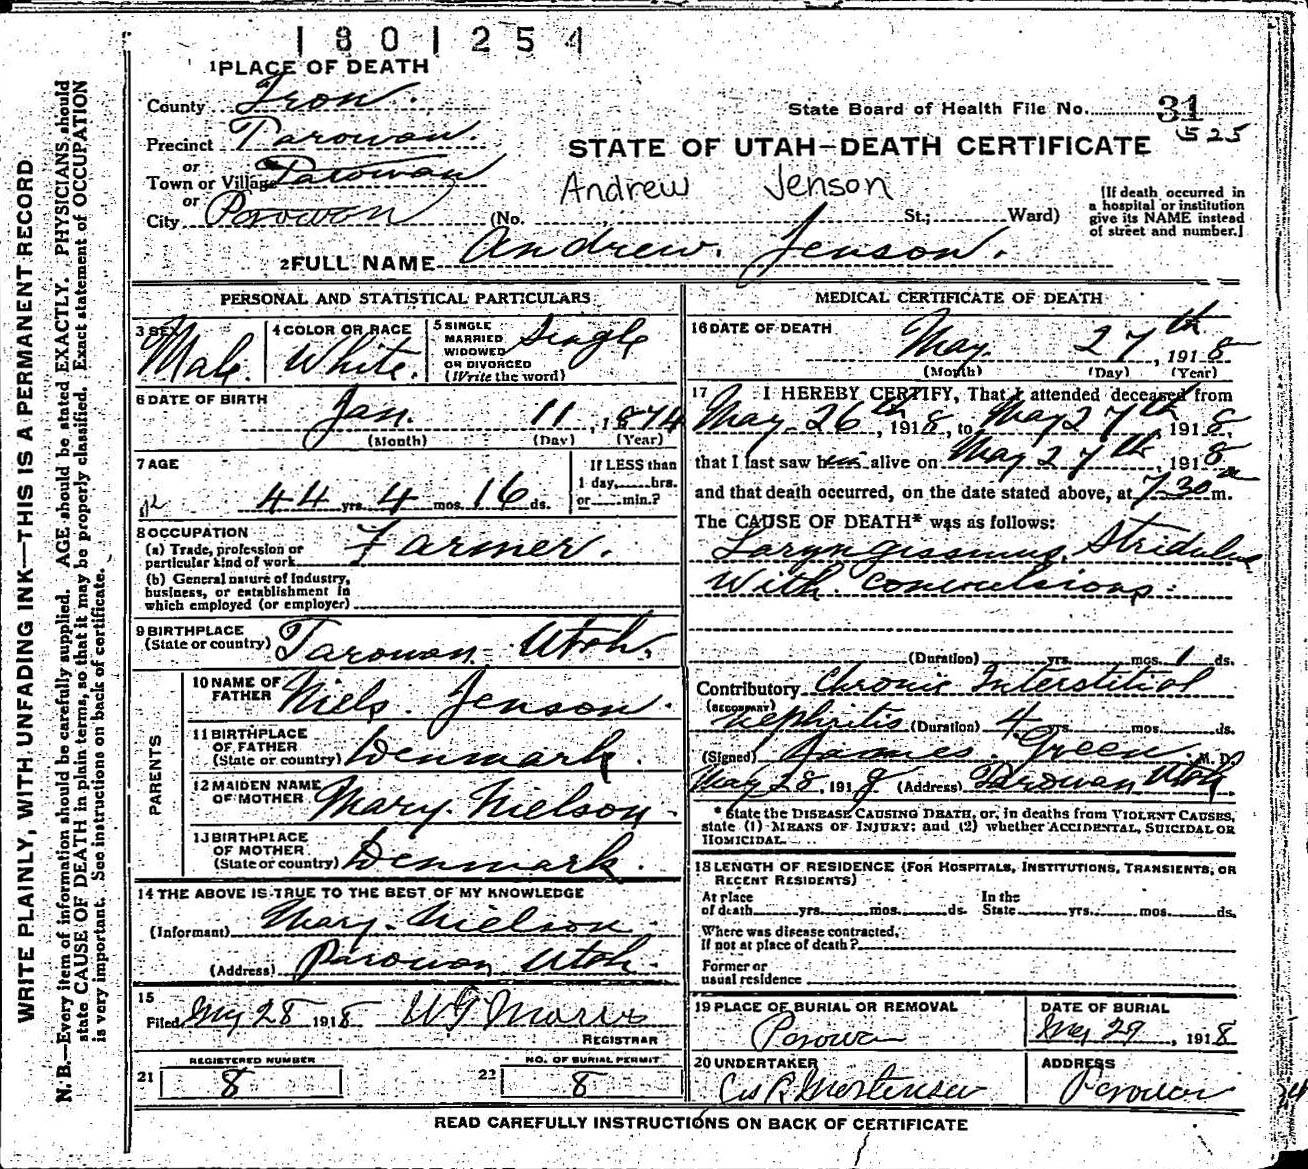 1801254
1 PLACE OF DEATH
County Iron.
State Board of Health File No. 31
525
Precinct Parowan
STATE OF UTAH—DEATH CERTIFICATE
or
Town or Village Parowan
Andrew Jenson
or
City Parowan
(No. St.; Ward)
[If death occurred in
a hospital or institution
give its NAME instead
of street and number.]
2 FULL NAME Andrew. Jenson.
PERSONAL AND STATISTICAL PARTICULARS
3 SEX
Male.
4 COLOR OR RACE
White.
5 SINGLE
MARRIED
WIDOWED
OR DIVORCED
(Write the word)
Single
6 DATE OF BIRTH
Jan. 11, 1874
(Month) (Day) (Year)
7 AGE
44 yrs. 4 mos. 16 ds.
If LESS than
1 day, hrs.
or min.?
8 OCCUPATION
(a) Trade, profession or
particular kind of work Farmer.
(b) General nature of Industry,
business, or establishment in
which employed (or employer)
9 BIRTHPLACE
(State or country) Parowan Utah.
PARENTS
10 NAME OF
FATHER Niels. Jenson.
11 BIRTHPLACE
OF FATHER
(State or country) Denmark.
12 MAIDEN NAME
OF MOTHER Mary. Nielson.
13 BIRTHPLACE
OF MOTHER
(State or country) Denmark.
14 THE ABOVE IS TRUE TO THE BEST OF MY KNOWLEDGE
(Informant) Mary. Nielson.
(Address) Parowan, Utah.
15
Filed May 28 1918
REGISTRAR
REGISTERED NUMBER
21 8
NO. OF BURIAL PERMIT
22 8
MEDICAL CERTIFICATE OF DEATH
16 DATE OF DEATH
May. 27th, 1918
(Month) (Day) (Year)
17 I HEREBY CERTIFY, That I attended deceased from
May. 26th, 1918, to May 27th 1918,
that I last saw him alive on May 27th, 1918
and that death occurred, on the date stated above, at 7.30 a m.
The CAUSE OF DEATH* was as follows:
Laryngissmus, Stridulus
With. convulsions.
(Duration) yrs. mos. 1 ds.
Contributory Chronic Interstitial
(SECONDARY)
Nephritis (Duration) 4 yrs. mos. ds.
(Signed) James. Green, M. D.
May 28, 1918 (Address) Parowan Utah
* State the DISEASE CAUSING DEATH, or, in deaths from VIOLENT CAUSES,
state (1) MEANS OF INJURY; and (2) whether ACCIDENTAL, SUICIDAL OR
HOMICIDAL.
18 LENGTH OF RESIDENCE (FOR HOSPITALS, INSTITUTIONS, TRANSIENTS, OR
RECENT RESIDENTS)
At place
of death yrs. mos. ds.
In the
State yrs. mos. ds.
Where was disease contracted,
If not at place of death?
Former or
usual residence
19 PLACE OF BURIAL OR REMOVAL
Parowan
DATE OF BURIAL
May 29, 1918
20 UNDERTAKER
Mortensen
ADDRESS
Parowan
READ CAREFULLY INSTRUCTIONS ON BACK OF CERTIFICATE
WRITE PLAINLY, WITH UNFADING INK—THIS IS A PERMANENT RECORD
N. B.—Every item of information should be carefully supplied. AGE should be stated EXACTLY. PHYSICIANS should
state CAUSE OF DEATH in plain terms, so that it may be properly classified. Exact statement of OCCUPATION
is very important. See instructions on back of certificate.